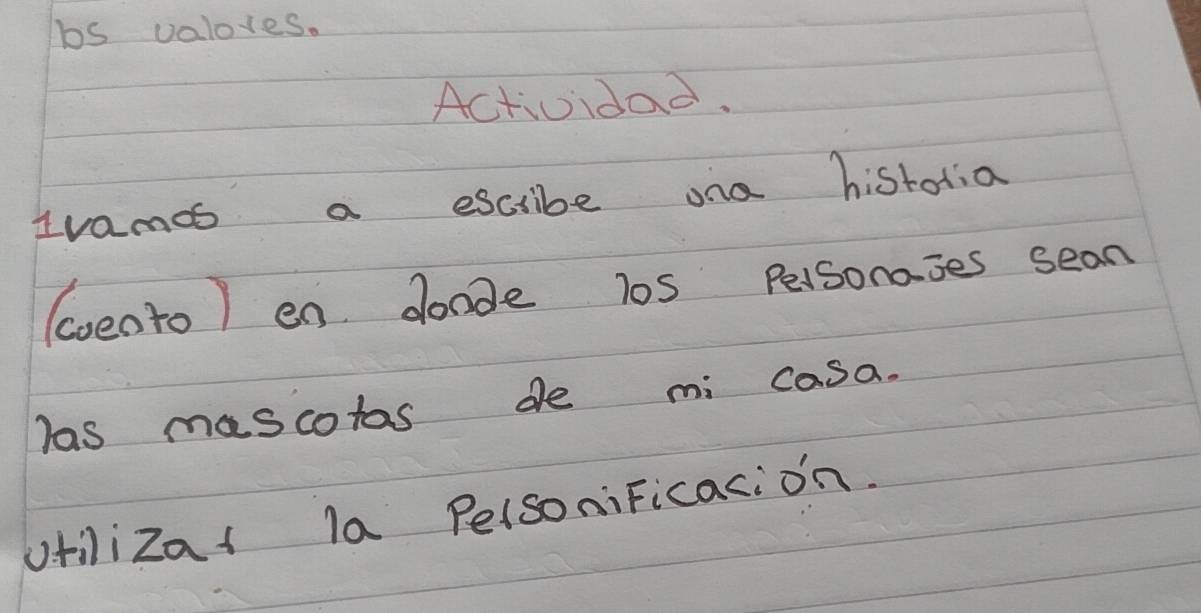 los valores.
Actividad.
1 vamos a escribe una historia
(cuento) en donde los Personajes sean
las mascotas de mi casa.
utilizar la Personificación.